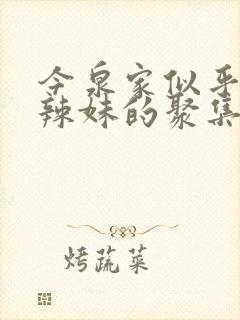 今泉家似乎
辣妹的聚集
烤蔬菜